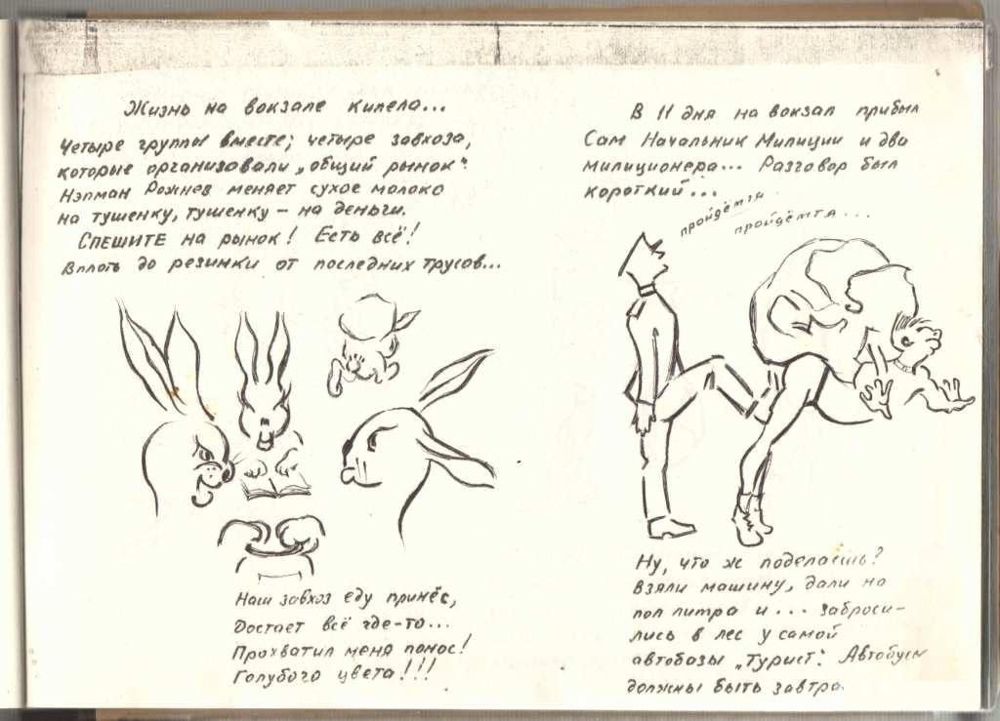 Жизнь на вокзале кипела...
Четыре группы вместе; четыре завхоза,
которые организовали „общий рынок“.
Нэпман Рожнев меняет сухое молоко
на тушенку, тушенку – на деньги.
СПЕШИТЕ на рынок! Есть всё!
Вплоть до резинки от последних трусов...
Наш завхоз еду принёс,
Достает всё где-то...
Прохватил меня понос!
Голубого цвета!!!
В 11 дня на вокзал прибыл
Сам Начальник Милиции и два
милиционера... Разговор был
короткий...
пройдёмтя
пройдёмтя...
Ну, что ж поделаешь?
Взяли машину, дали на
пол литра и... заброси-
лись в лес у самой
автобазы „Турист“. Автобусы
должны быть завтра.